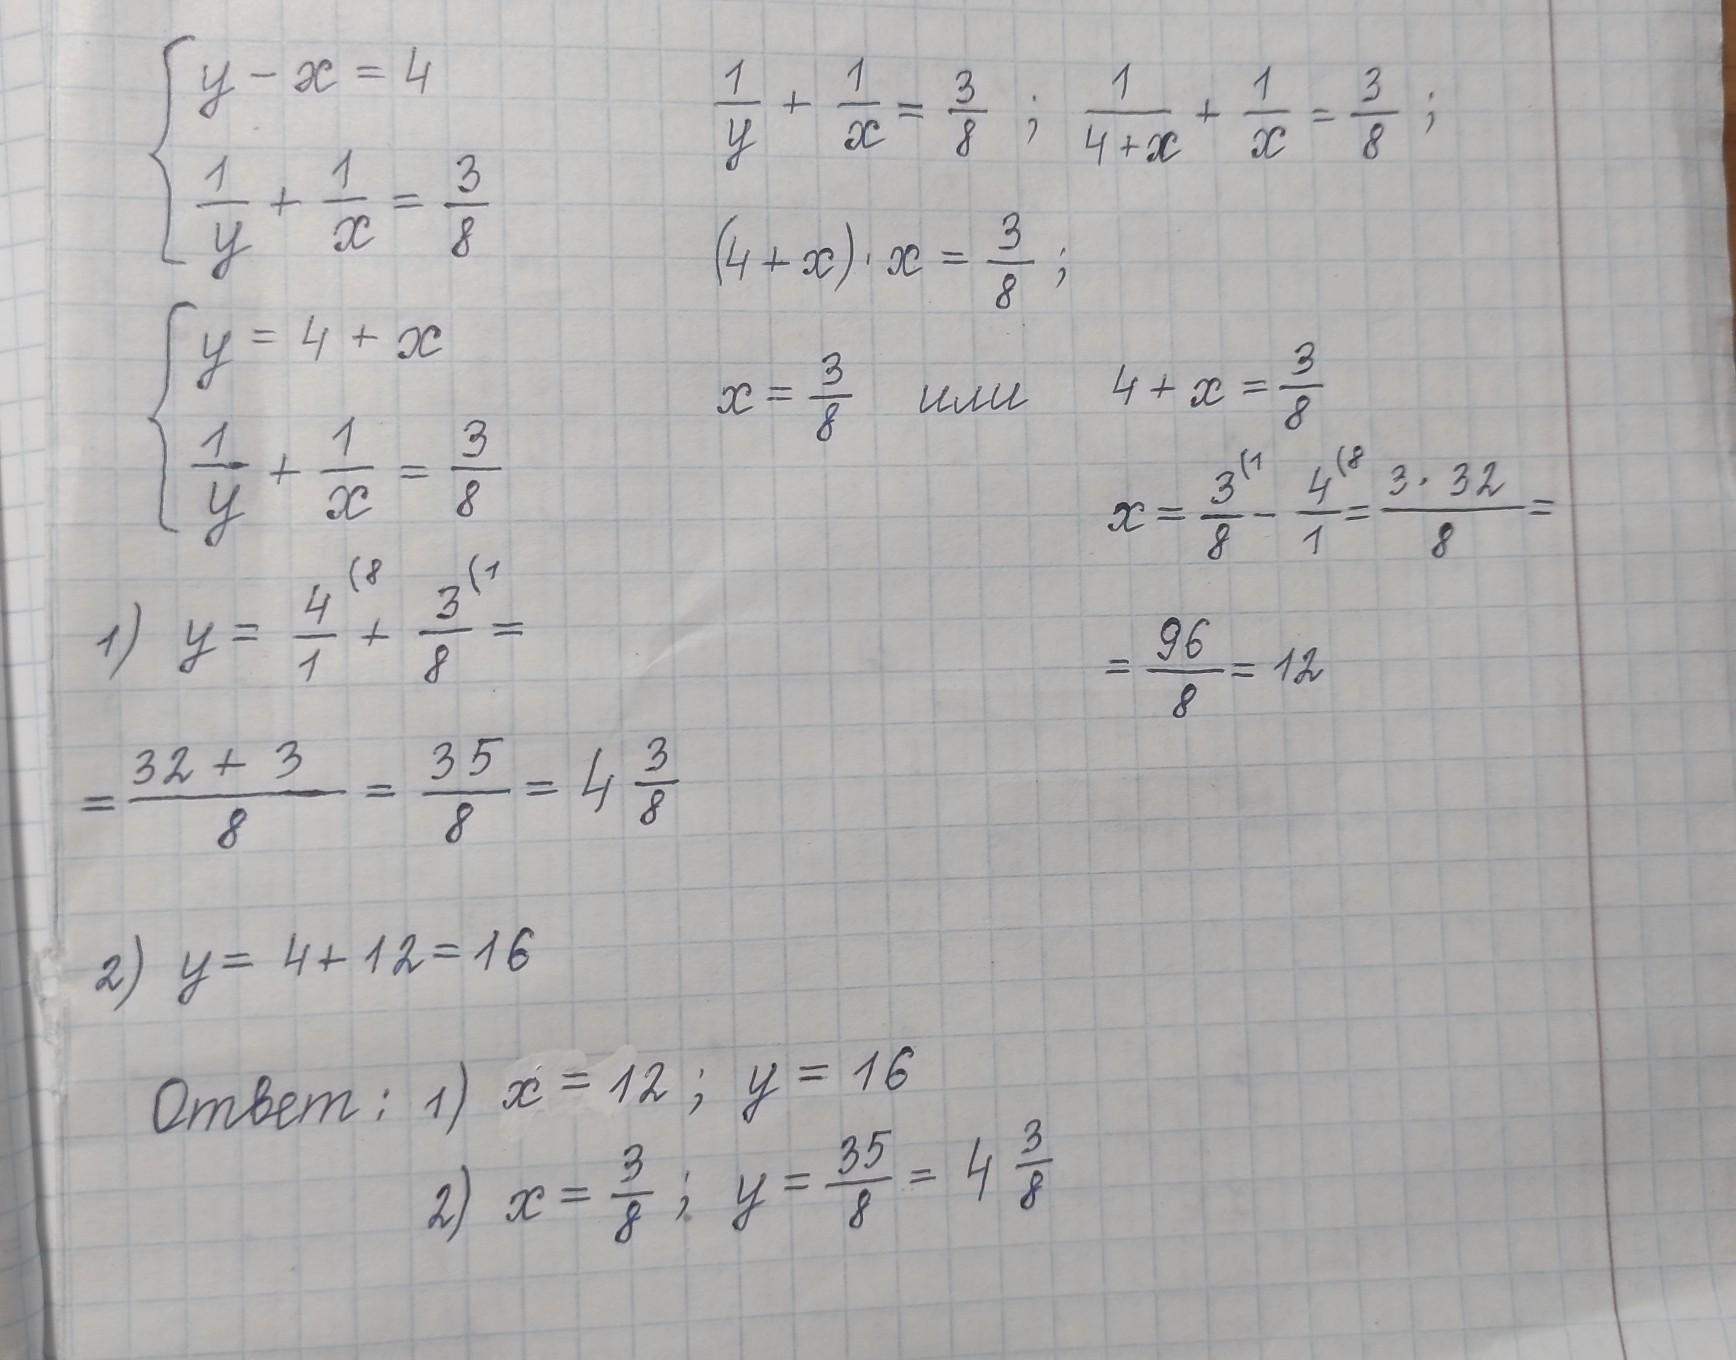 y - x = 4
1/y + 1/x = 3/8
y = 4 + x
1/y + 1/x = 3/8
1) y = 4/1 (8 + 3/8 (1 =
= (32 + 3)/8 = 35/8 = 4 3/8
2) y = 4 + 12 = 16
1/y + 1/x = 3/8 ; 1/(4+x) + 1/x = 3/8 ;
(4 + x) · x = 3/8 ;
x = 3/8 или 4 + x = 3/8
x = 3/8 (1 - 4/1 (8 = (3 · 32)/8 =
= 96/8 = 12
Ответ: 1) x = 12 ; y = 16
2) x = 3/8 ; y = 35/8 = 4 3/8